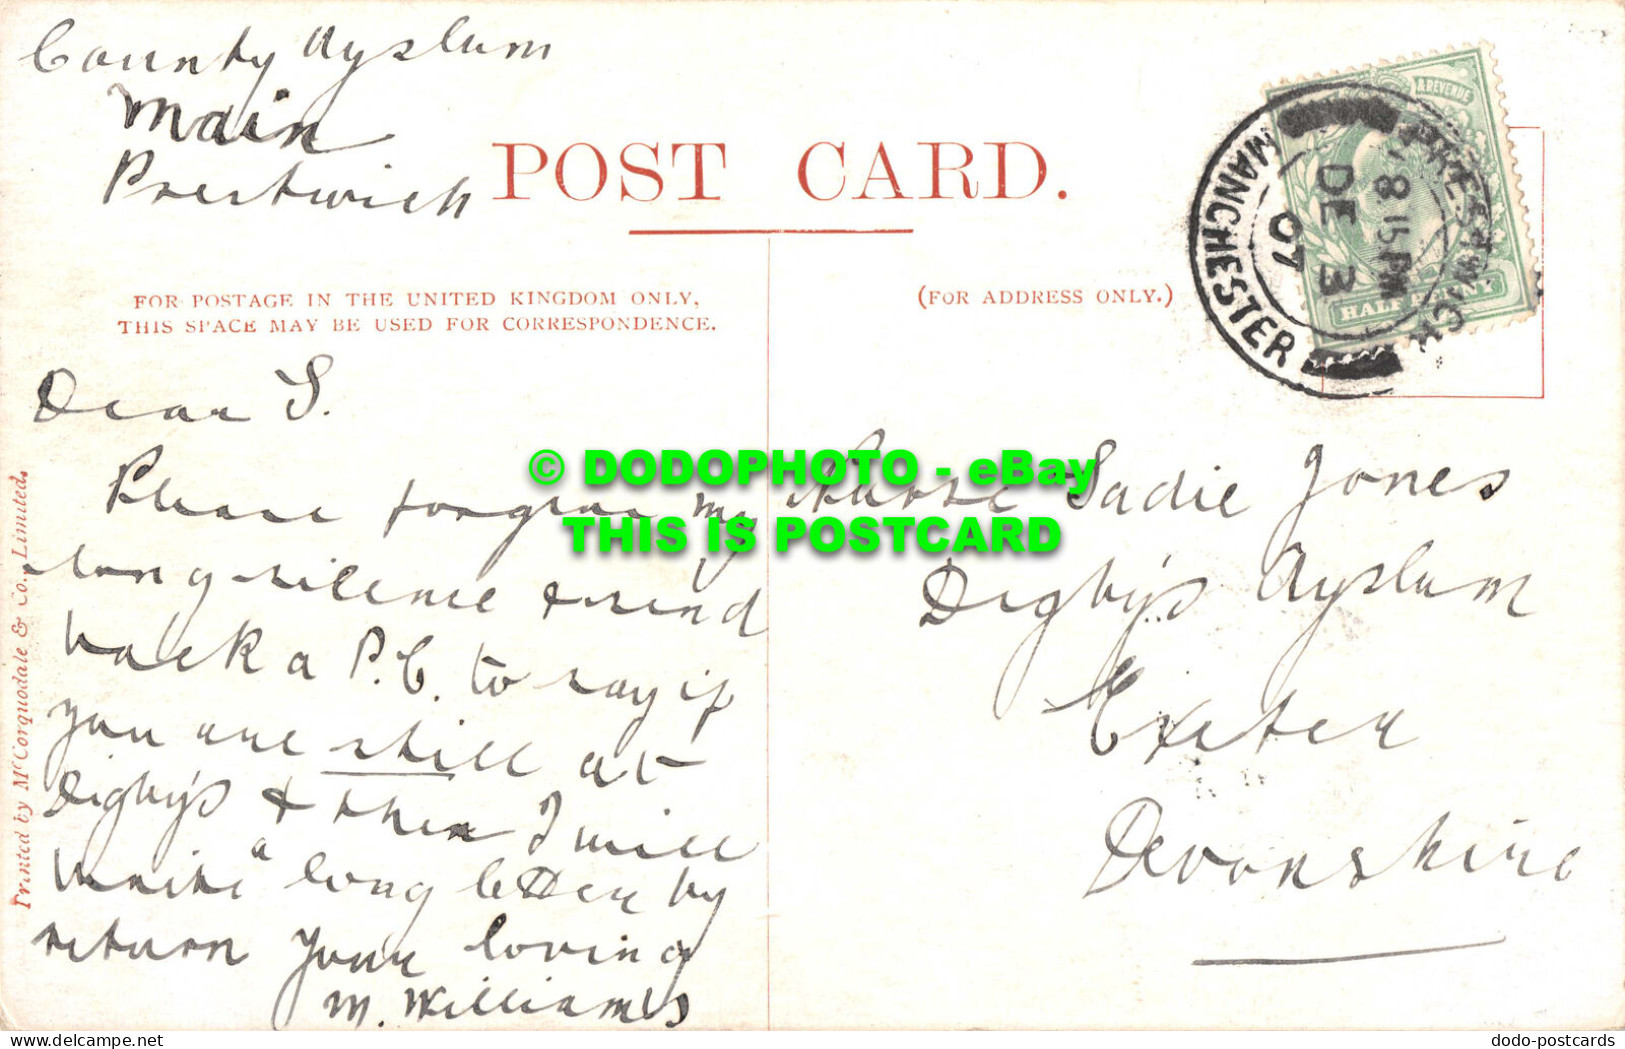 County Ayslum
Main
Prestwich
POST CARD.
FOR POSTAGE IN THE UNITED KINGDOM ONLY,
THIS SPACE MAY BE USED FOR CORRESPONDENCE.
(FOR ADDRESS ONLY.)
& REVENUE
HALFPENNY
PRESTWICH
8.15 PM
DE 3
07
MANCHESTER
Dear S.
Please forgive my
long silence & send
back a P.C. to say if
you are still at
Digby's & then I will
write a long letter by
return Your loving
M. Williams
Nurse Sadie Jones
Digby's Ayslum
Exeter
Devonshire
Printed by McCorquodale & Co., Limited.
© DODOPHOTO - eBay
THIS IS POSTCARD
www.delcampe.net
dodo-postcards